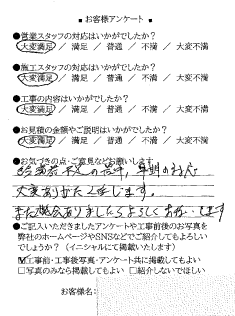 ▪ お客様アンケート ▪
●営業スタッフの対応はいかがでしたか？
大変満足 ／ 満足 ／ 普通 ／ 不満 ／ 大変不満
●施工スタッフの対応はいかがでしたか？
大変満足 ／ 満足 ／ 普通 ／ 不満 ／ 大変不満
●工事の内容はいかがでしたか？
大変満足 ／ 満足 ／ 普通 ／ 不満 ／ 大変不満
●お見積の金額やご説明はいかがでしたか？
大変満足 ／ 満足 ／ 普通 ／ 不満 ／ 大変不満
●お気づきの点・ご意見などお願いします
の中、早期の対応
大変ありがたく存じます。
また機会ありましたらよろしくお願いします
●ご記入いただきましたアンケートや工事前後のお写真を
弊社のホームページやSNSなどでご紹介してもよろしい
でしょうか？（イニシャルにて掲載いたします）
☑工事前・工事後写真・アンケート共に掲載してもよい
□写真のみなら掲載してもよい □紹介しないでほしい
お客様名：